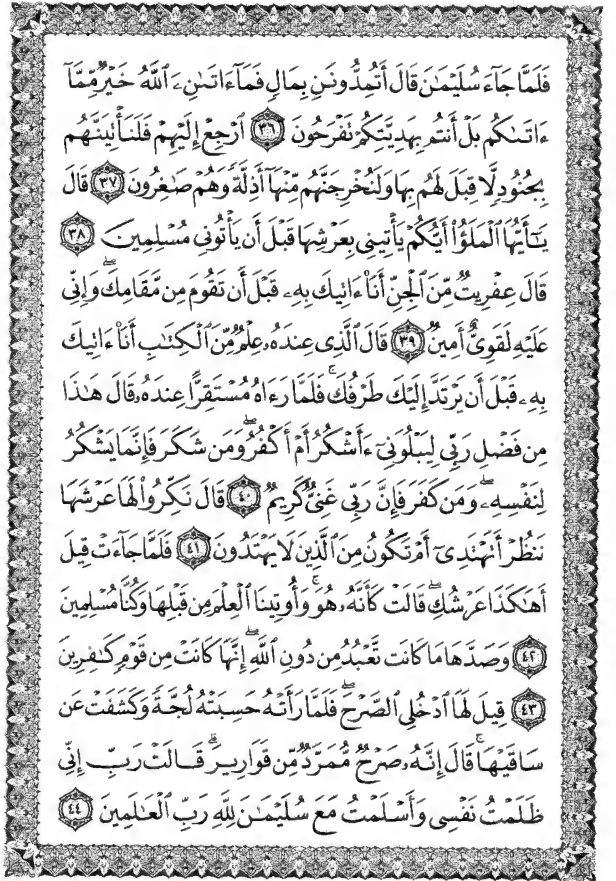 فَلَمَّا جَآءَ سُلَيْمَٰنَ قَالَ أَتُمِدُّونَنِ بِمَالٍ فَمَآ ءَاتَىٰنِۦَ ٱللَّهُ خَيْرٌ مِّمَّآ
ءَاتَىٰكُم بَلْ أَنتُم بِهَدِيَّتِكُمْ نَفْرَحُونَ ٣٦ ٱرْجِعْ إِلَيْهِمْ فَلَنَأْتِيَنَّهُم
بِجُنُودٍ لَّا قِبَلَ لَهُم بِهَا وَلَنُخْرِجَنَّهُم مِّنْهَآ أَذِلَّةً وَهُمْ صَٰغِرُونَ ٣٧ قَالَ
يَٰٓأَيُّهَا ٱلْمَلَؤُا۟ أَيُّكُمْ يَأْتِينِى بِعَرْشِهَا قَبْلَ أَن يَأْتُونِى مُسْلِمِينَ ٣٨
قَالَ عِفْرِيتٌ مِّنَ ٱلْجِنِّ أَنَا۠ ءَاتِيكَ بِهِۦ قَبْلَ أَن تَقُومَ مِن مَّقَامِكَ ۖ وَإِنِّى
عَلَيْهِ لَقَوِىٌّ أَمِينٌ ٣٩ قَالَ ٱلَّذِى عِندَهُۥ عِلْمٌ مِّنَ ٱلْكِتَٰبِ أَنَا۠ ءَاتِيكَ
بِهِۦ قَبْلَ أَن يَرْتَدَّ إِلَيْكَ طَرْفُكَ ۚ فَلَمَّا رَءَاهُ مُسْتَقِرًّا عِندَهُۥ قَالَ هَٰذَا
مِن فَضْلِ رَبِّى لِيَبْلُوَنِىٓ ءَأَشْكُرُ أَمْ أَكْفُرُ ۖ وَمَن شَكَرَ فَإِنَّمَا يَشْكُرُ
لِنَفْسِهِۦ ۖ وَمَن كَفَرَ فَإِنَّ رَبِّى غَنِىٌّ كَرِيمٌ ٤٠ قَالَ نَكِّرُوا۟ لَهَا عَرْشَهَا
نَنظُرْ أَتَهْتَدِىٓ أَمْ تَكُونُ مِنَ ٱلَّذِينَ لَا يَهْتَدُونَ ٤١ فَلَمَّا جَآءَتْ قِيلَ
أَهَٰكَذَا عَرْشُكِ ۖ قَالَتْ كَأَنَّهُۥ هُوَ ۚ وَأُوتِينَا ٱلْعِلْمَ مِن قَبْلِهَا وَكُنَّا مُسْلِمِينَ
٤٢ وَصَدَّهَا مَا كَانَت تَّعْبُدُ مِن دُونِ ٱللَّهِ ۖ إِنَّهَا كَانَتْ مِن قَوْمٍ كَٰفِرِينَ
٤٣ قِيلَ لَهَا ٱدْخُلِى ٱلصَّرْحَ ۖ فَلَمَّا رَأَتْهُ حَسِبَتْهُ لُجَّةً وَكَشَفَتْ عَن
سَاقَيْهَا ۚ قَالَ إِنَّهُۥ صَرْحٌ مُّمَرَّدٌ مِّن قَوَارِيرَ ۗ قَالَتْ رَبِّ إِنِّى
ظَلَمْتُ نَفْسِى وَأَسْلَمْتُ مَعَ سُلَيْمَٰنَ لِلَّهِ رَبِّ ٱلْعَٰلَمِينَ ٤٤